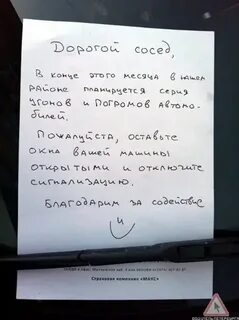 Дорогой сосед,
В конце этого месяца в нашем
районе планируется серия
угонов и погромов автомо-
билей.
Пожалуйста, оставьте
окна вашей машины
открытыми и отключите
сигнализацию.
Благодарим за содействие
Страховая компания «МАКС»